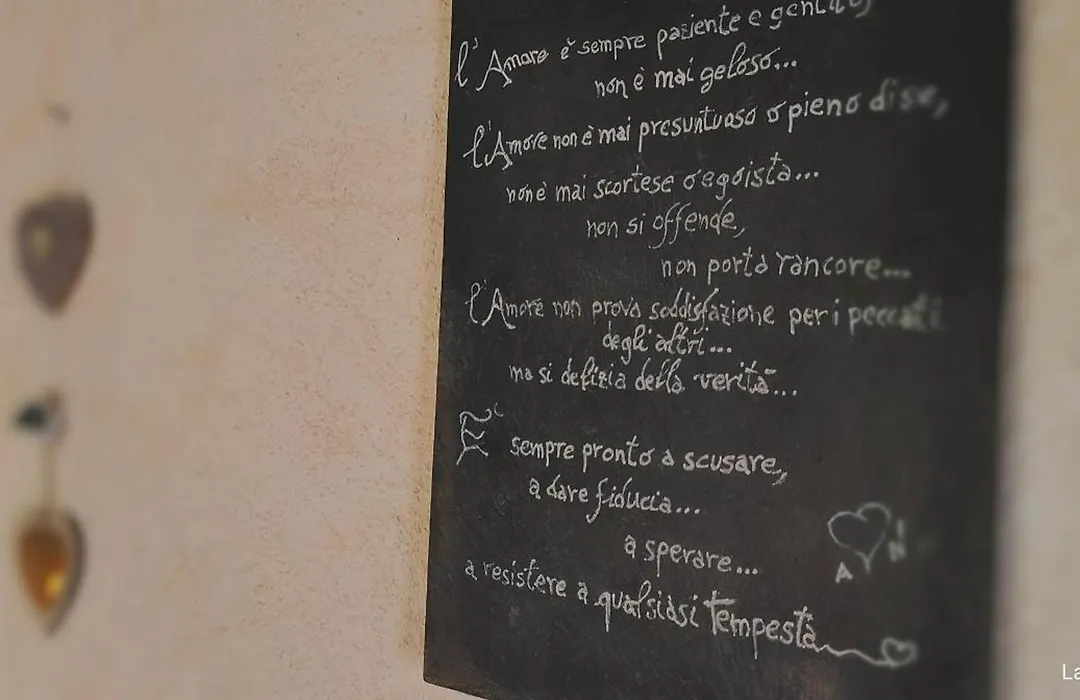 l'Amore è sempre paziente e gentile,
non è mai geloso...
l'Amore non è mai presuntuoso o pieno di se,
non è mai scortese o egoista...
non si offende,
non porta rancore...
l'Amore non prova soddisfazione per i peccati
degli altri...
ma si delizia della verità...
È sempre pronto a scusare,
a dare fiducia...
a sperare...
a resistere a qualsiasi tempesta
A N
La